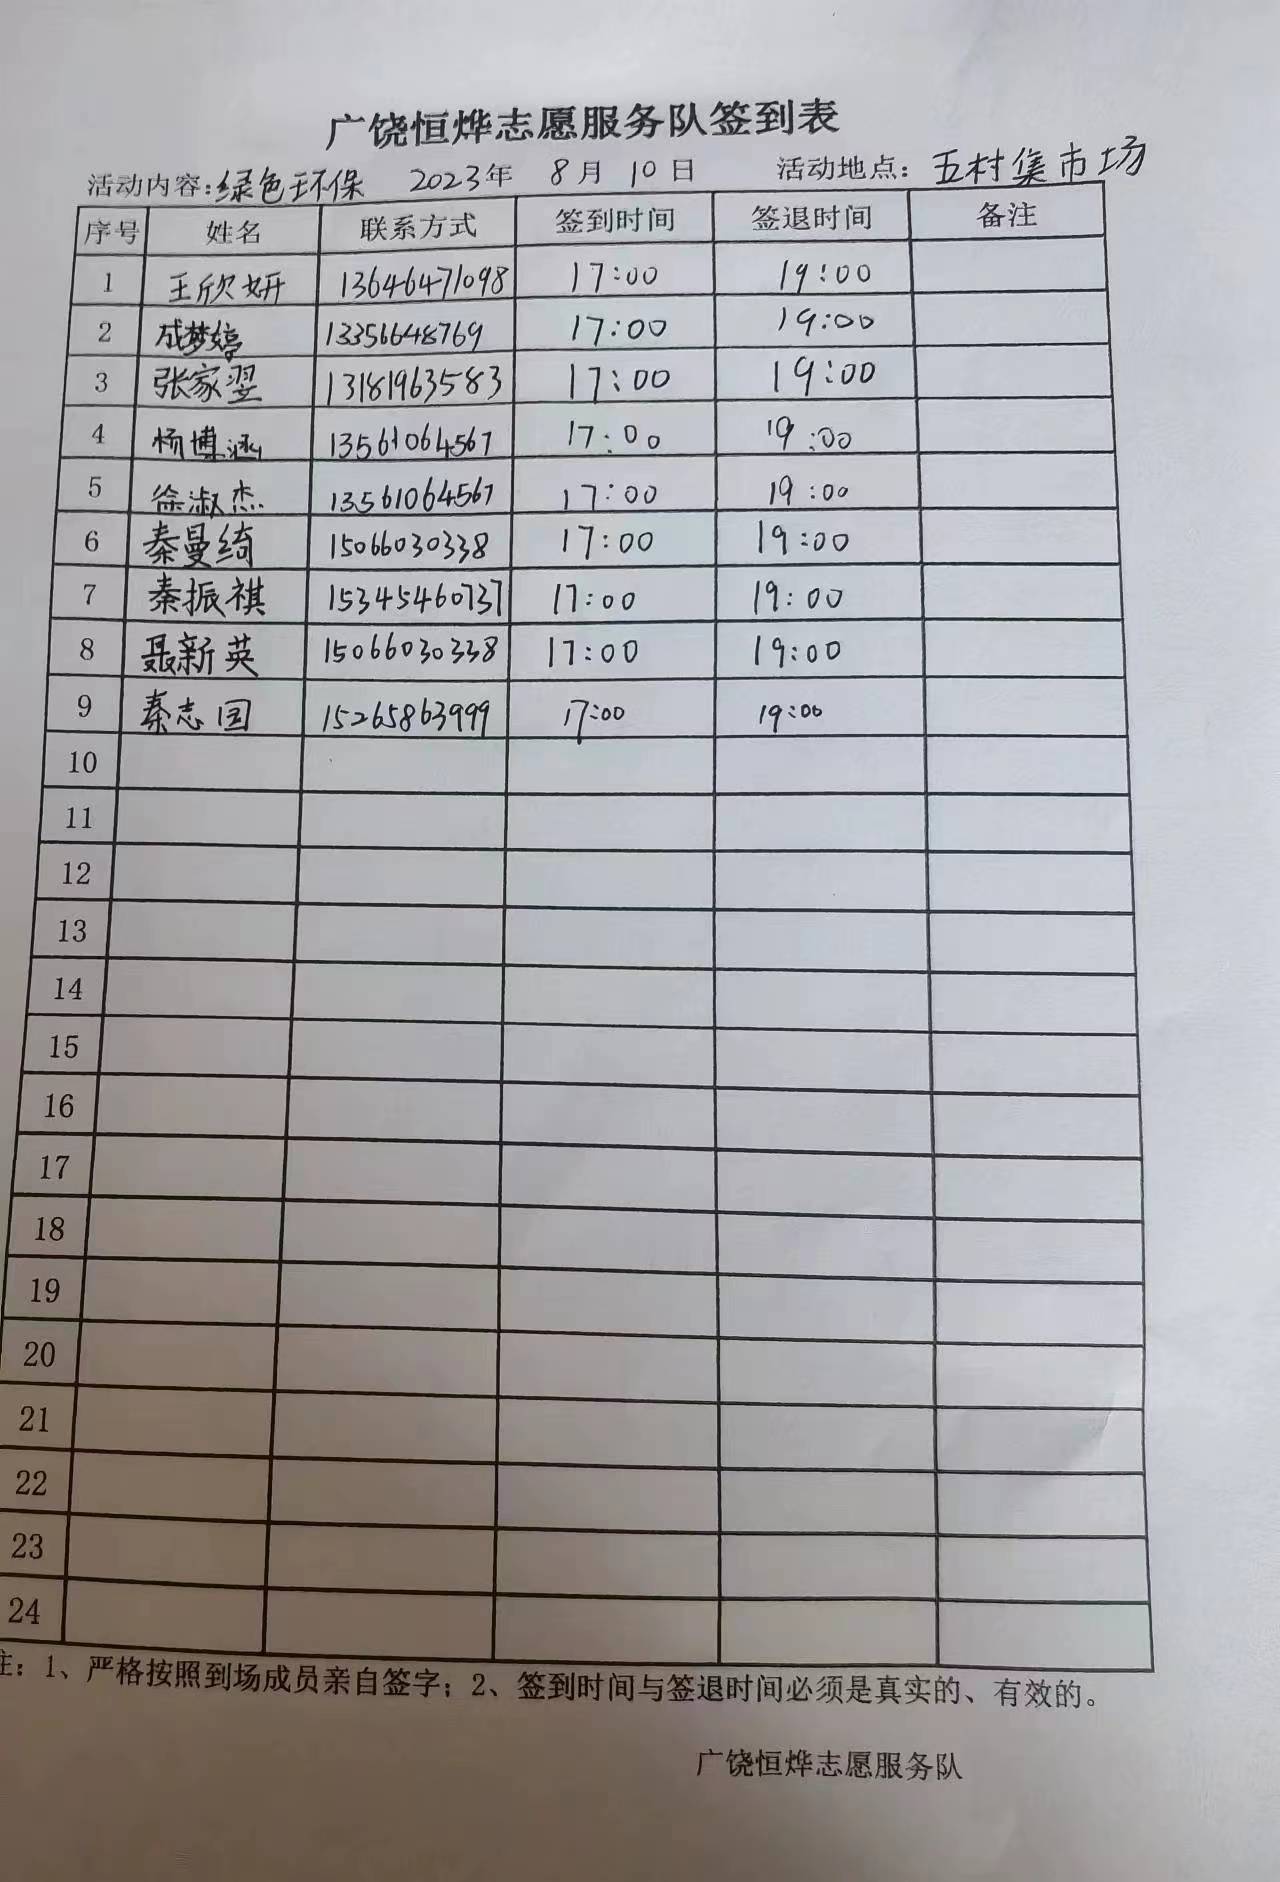 广饶恒烨志愿服务队签到表
活动内容:绿色环保 2023年 8月 10日 活动地点:五村集市场
序号 姓名 联系方式 签到时间 签退时间 备注
1 王欣妍 13646471098 17:00 19:00
2 成梦婷 13356648769 17:00 19:00
3 张家翌 13181963583 17:00 19:00
4 杨博涵 13561064567 17:00 19:00
5 徐淑杰 13561064567 17:00 19:00
6 秦曼绮 15066030338 17:00 19:00
7 秦振祺 15345460737 17:00 19:00
8 聂新英 15066030338 17:00 19:00
9 秦志国 15265863999 17:00 19:00
10
11
12
13
14
15
16
17
18
19
20
21
22
23
24
注：1、严格按照到场成员亲自签字；2、签到时间与签退时间必须是真实的、有效的。
广饶恒烨志愿服务队